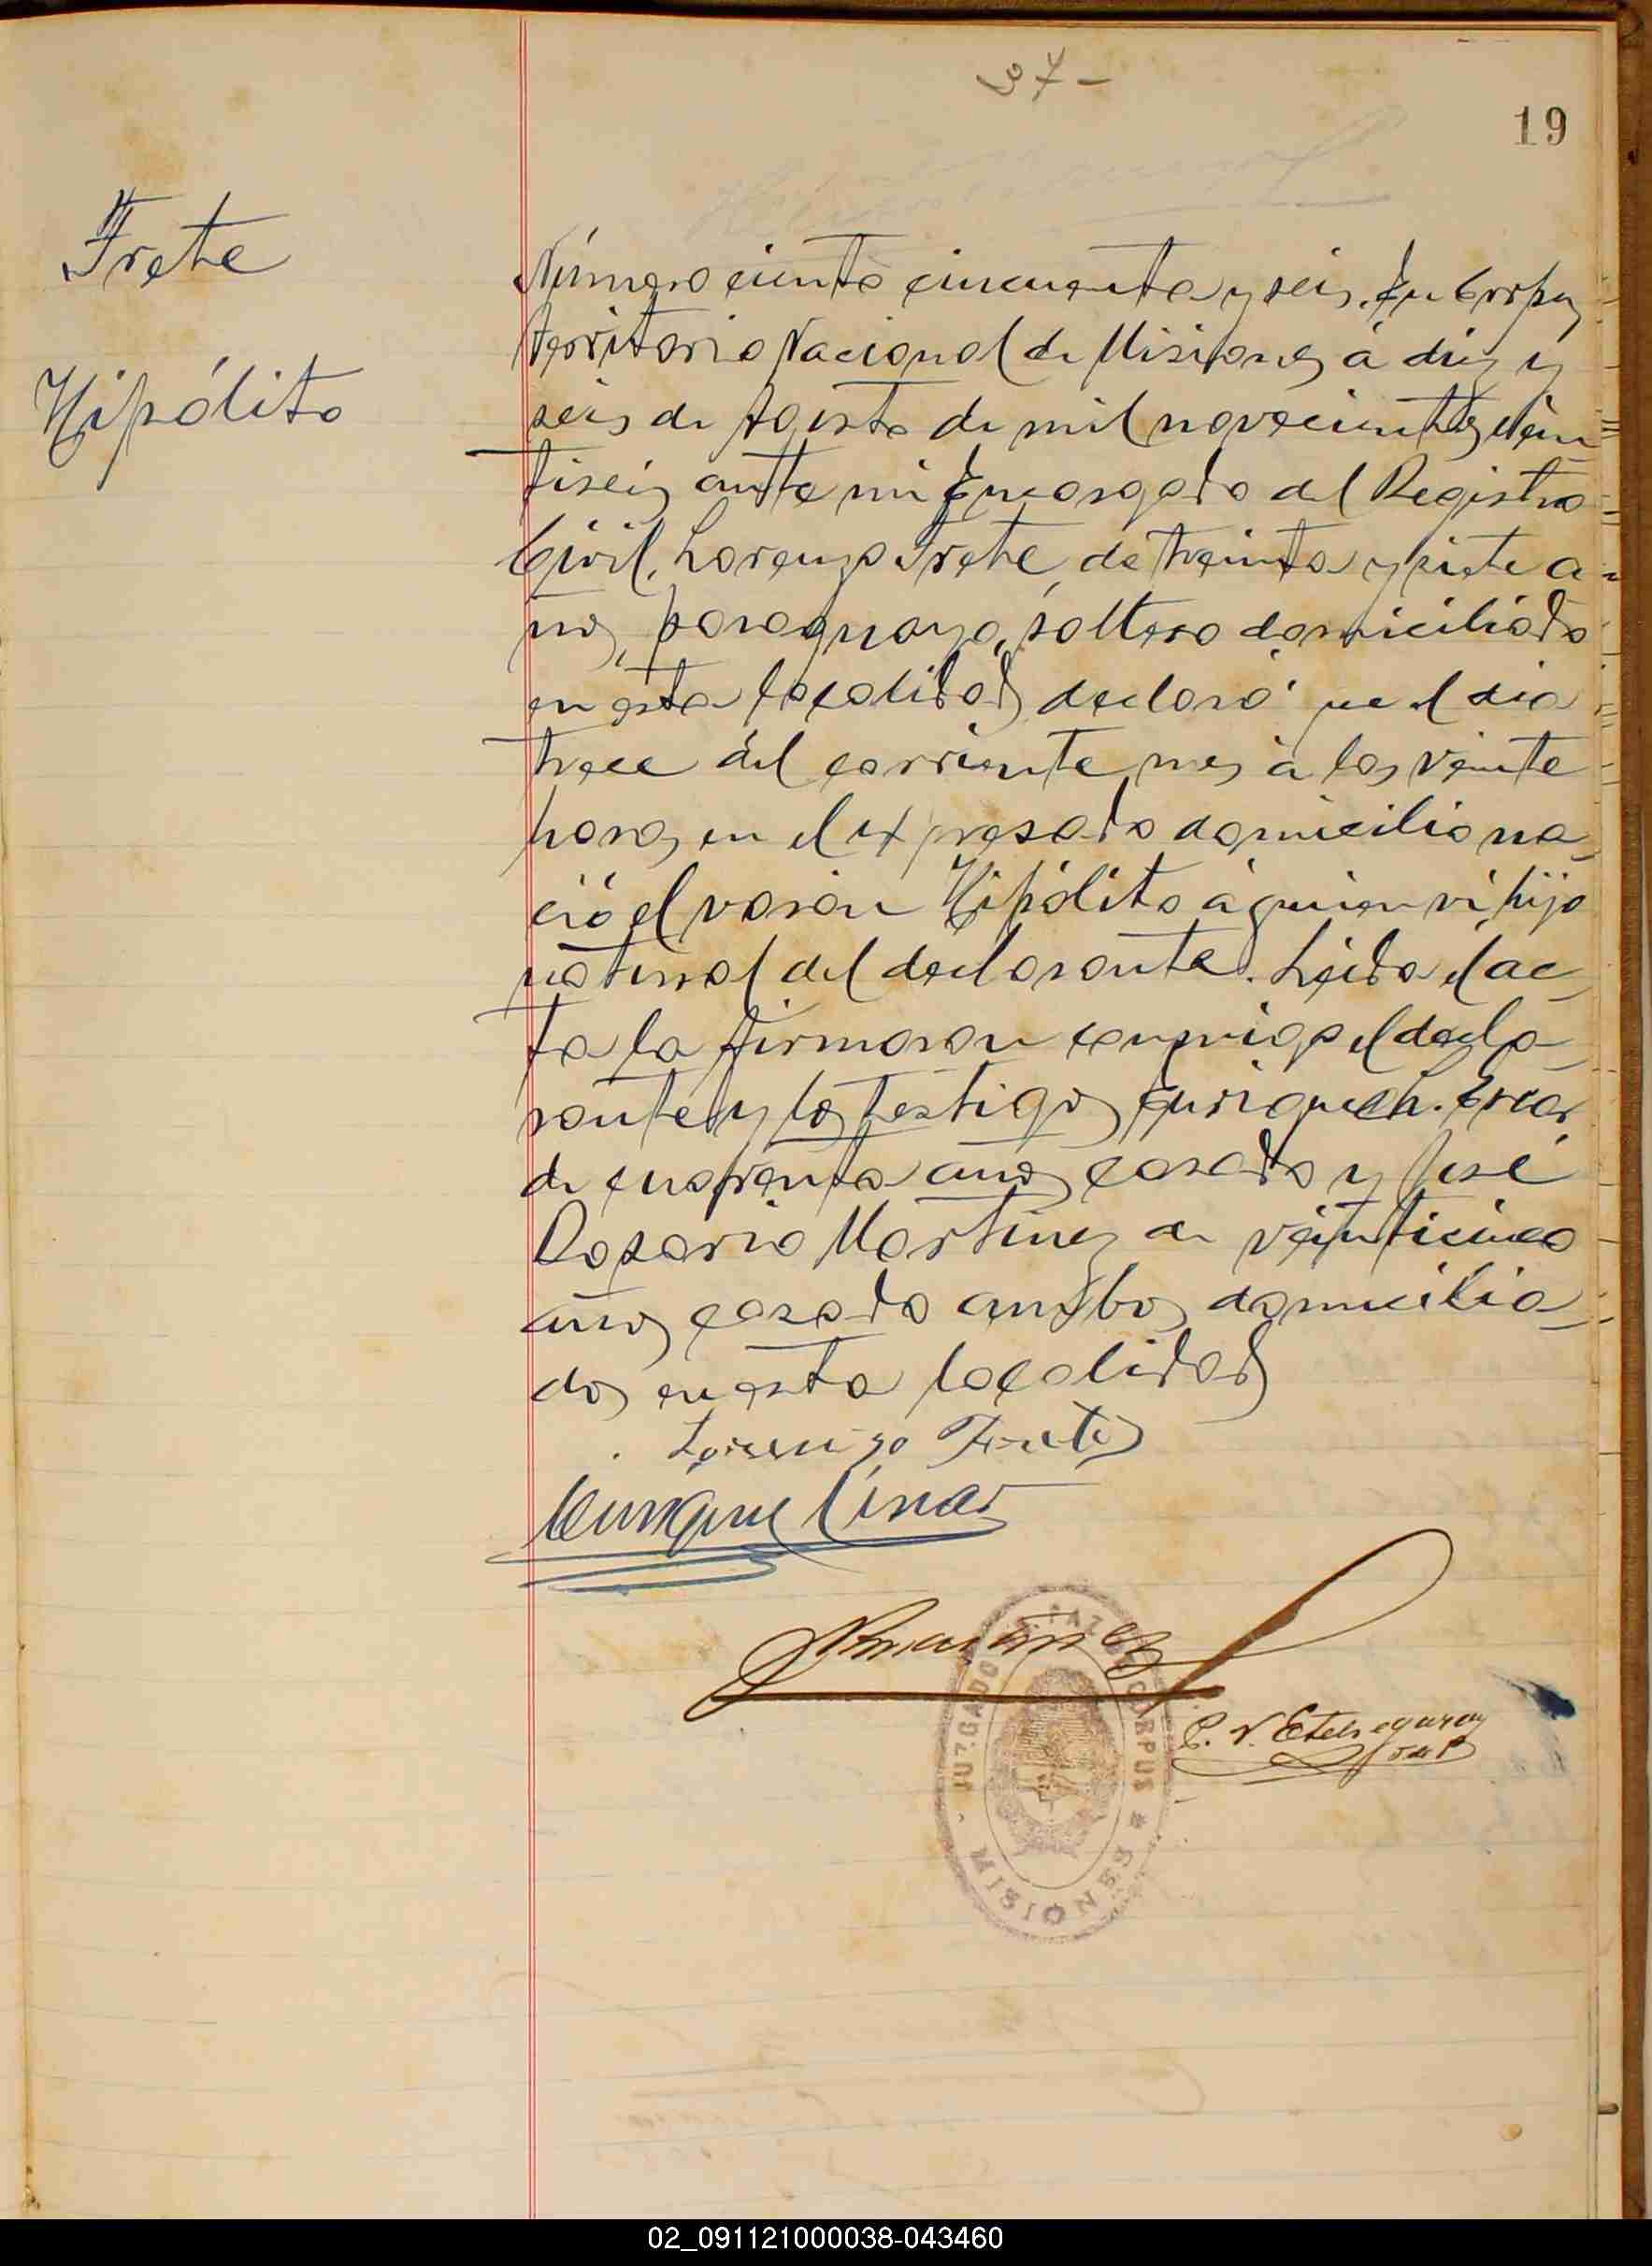 37-
19
Frete
Hipólito
Número ciento cincuenta y seis. En Corpus
Territorio Nacional de Misiones á diez y
seis de Agosto de mil novecientos vein
tiseis ante mi Encargado del Registro
Civil, Lorenzo Frete, de treinta y siete a-
ños, paraguayo, soltero domiciliado
en esta localidad, declaró que el dia
trece del corriente mes á las veinte
horas, en el expresado domicilio na-
ció el varón Hipólito á quien ví hijo
natural del declarante. Leida el ac-
ta la firmaron conmigo el decla-
rante y los testigos Enrique
de cuarenta años casado y José
Rosario Martinez de veinticinco
años casado ambos domicilia-
dos en esta localidad
Lorenzo Frete
Enrique
JUZGADO DE PAZ DE CORPUS * MISIONES *
P. V. Etchegaray
J de P
02_091121000038-043460